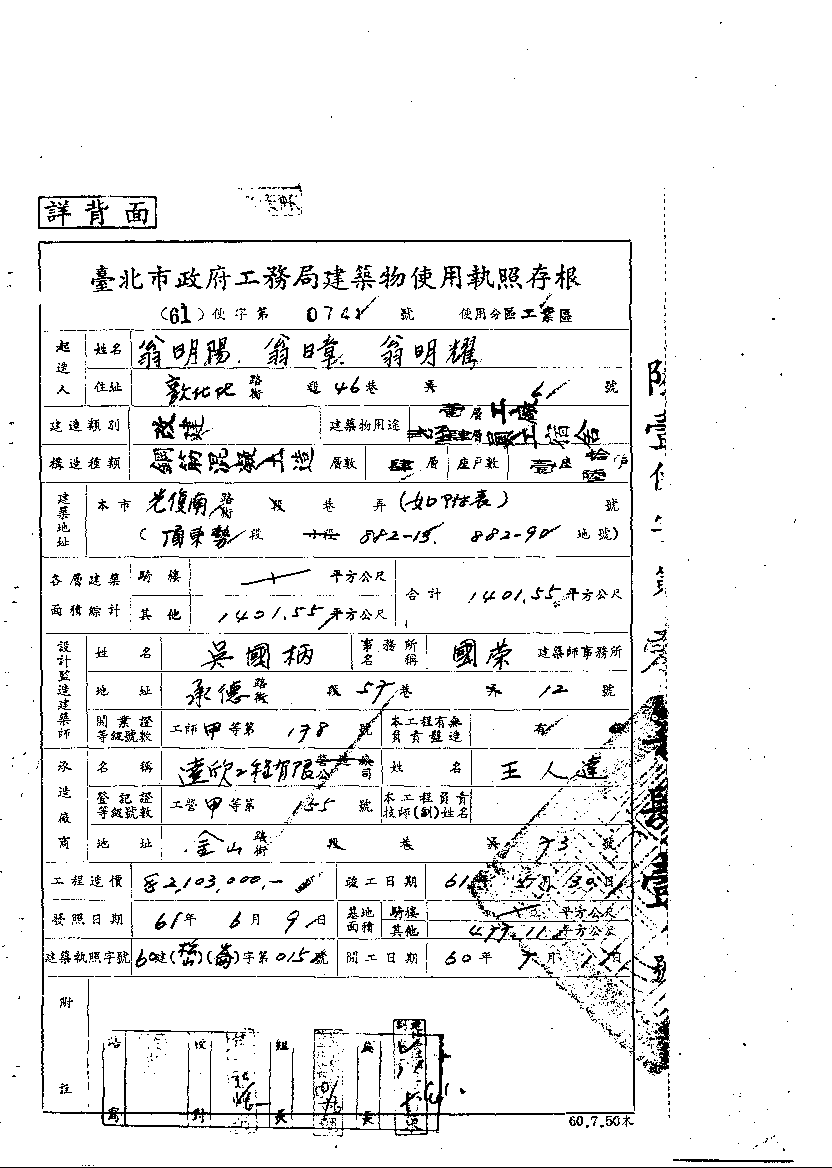 詳背面
臺北市政府工務局建築物使用執照存根
(61)使字第 0748 號 使用分區工業區
起造人 姓名 翁明陽、翁日章、翁明耀
住址 敦化北路街 段 46巷 弄 號
建造類別 改建 建築物用途 壹層工廠 員工宿舍
構造種類 鋼筋混凝土造 層數 肆層 座戶數 壹座拾陸戶
建築地址 本市 光復南路街 段 巷 弄 (如附表) 號
(頂東勢段 小段 882-15. 882-90 地號)
各層建築面積綜計 騎樓 平方公尺 合計 1401.55平方公尺
其他 1401.55平方公尺
設計監造建築師 姓名 吳國柄 事務所名稱 國榮 建築師事務所
地址 承德路街 段 57巷 弄 12 號
開業證等級號數 工師甲等第 178 號 本工程有無負責監造 有
承造廠商 名稱 達欣工程有限公司 姓名 王人達
登記證等級號數 工營甲等第 155 號 本工程負責技師(副)姓名
地址 金山路街 段 巷 弄 73 號
工程造價 2,103,000.- 竣工日期 61年 5月 30日
發照日期 61年 6月 9日 基地面積 騎樓 平方公尺
其他 477.11平方公尺
建築執照字號 60建(松)(崙)字第015號 開工日期 60年 月 日
附註
校對 組長
60.7.50本